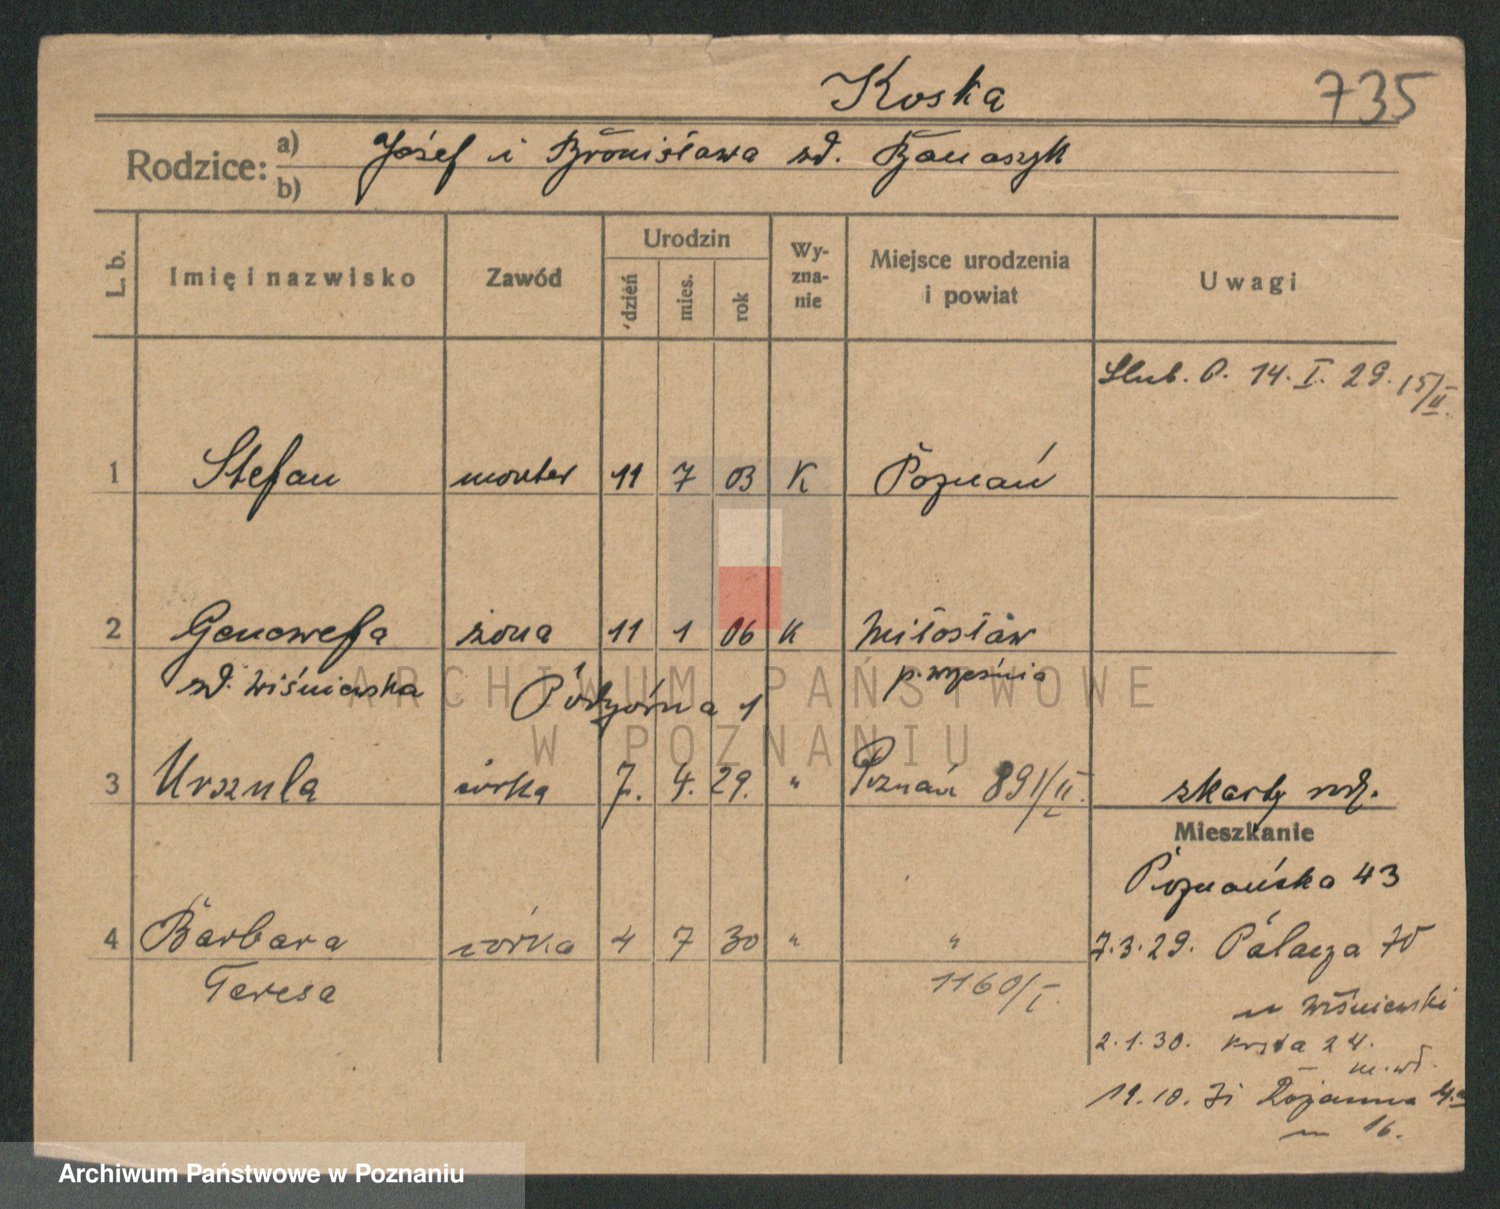 Koska 735
Rodzice: a) Józef i Bronisława zd. Banaszyk
b)
L. b. Imię i nazwisko Zawód Urodzin dzień mies. rok Wy-zna-nie Miejsce urodzenia i powiat Uwagi
Slub. P. 14. I. 29. 15/II
1 Stefan monter 11 7 03 K Poznań
2 Genowefa żona 11 1 06 K Miłosław
zd. Wiśniewska p. Września
Podgórna 1
3 Urszula córka 7. 4. 29. " Poznań 891/II. z karty rodz.
Mieszkanie
Poznańska 43
4 Barbara córka 4 7 30 " "
7.3.29. Palacza 70
Teresa 1160/I.
m Wiśniewski
2.1.30. 24.
m. wł.
19.10.31
m 16.
ARCHIWUM PAŃSTWOWE
W POZNANIU
Archiwum Państwowe w Poznaniu